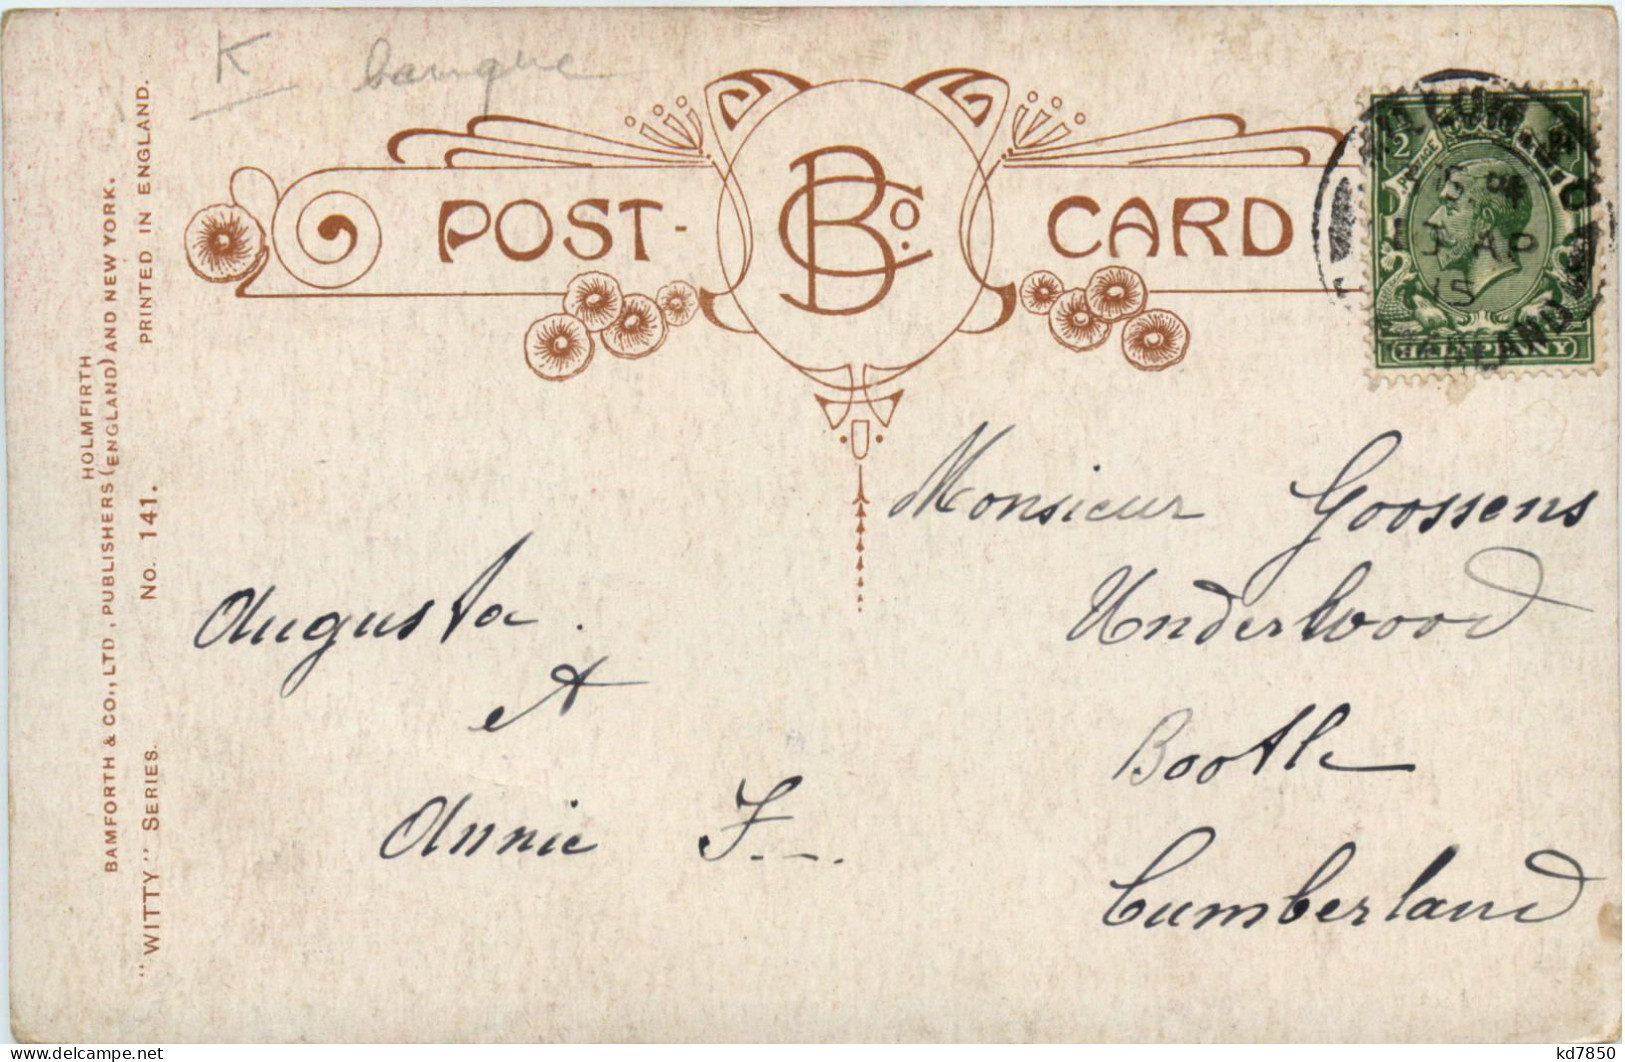 K banque
POST-
BCo.
CARD
HOLMFIRTH
BAMFORTH & CO., LTD, PUBLISHERS (ENGLAND) AND NEW YORK.
"WITTY" SERIES. No. 141. PRINTED IN ENGLAND.
1/2
POSTAGE
AP
15
HALFPENNY
Monsieur Goossens
Underwood
Bootle
Cumberland
Augusta.
et
Annie F.
kd7850